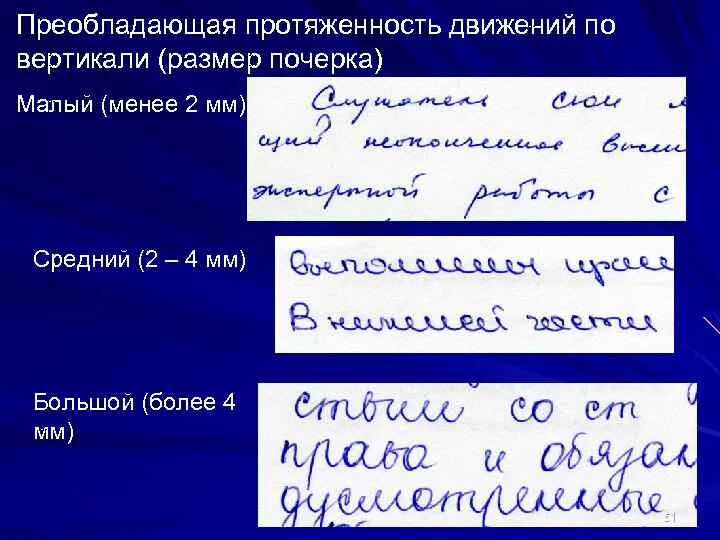 Преобладающая протяженность движений по
вертикали (размер почерка)
Малый (менее 2 мм)
Слушатель
щий неоконченное
экспертной работы с
Средний (2 – 4 мм)
выполнены
В нижней части
Большой (более 4
мм)
ствий со ст
права и обязан
дусмотренные
51